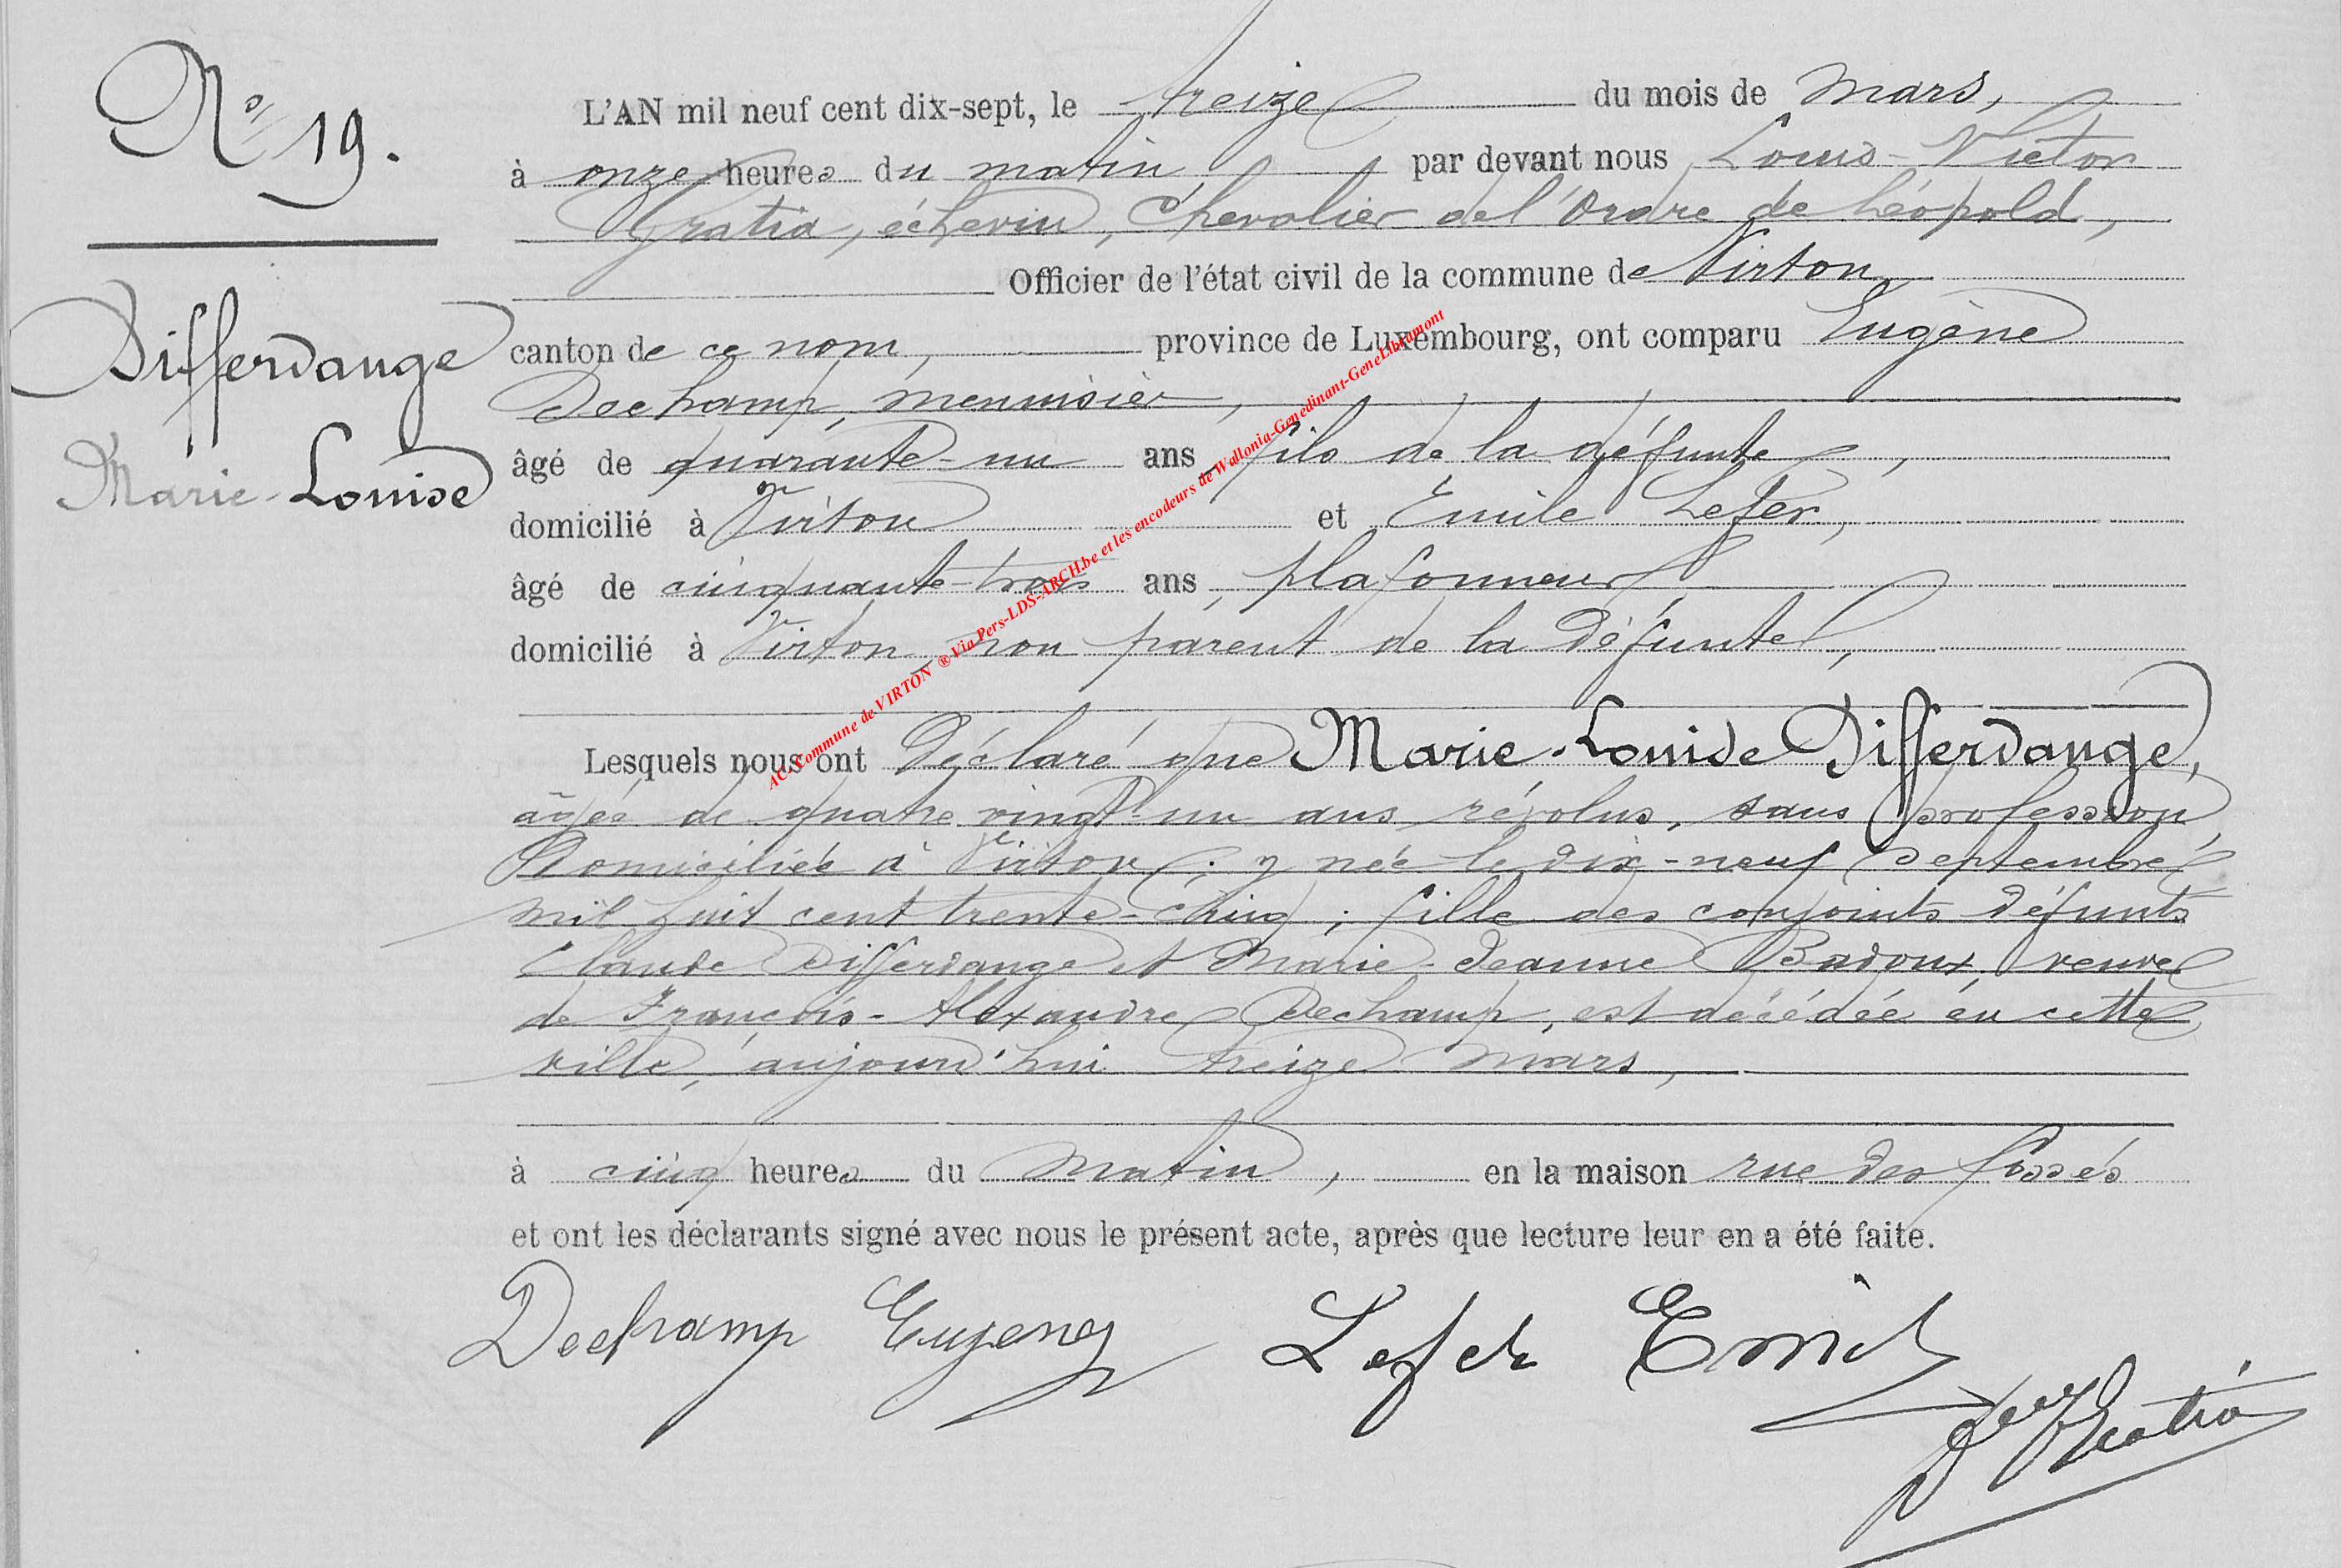 No 19.
Differdange
Marie-Louise
L'AN mil neuf cent dix-sept, le treize du mois de Mars,
à onze heures du matin, par devant nous Louis-Victor
Gratia, échevin, Chevalier de l'Ordre de Léopold,
Officier de l'état civil de la commune de Virton,
canton de ce nom, province de Luxembourg, ont comparu Eugène
Dechamp, menuisier,
âgé de quarante-un ans, fils de la défunte,
domicilié à Virton et Emile Lefèr,
âgé de cinquante-trois ans, plafonneur
domicilié à Virton, non parent de la défunte,
Lesquels nous ont déclaré que Marie-Louise Differdange,
âgée de quatre vingt-un ans révolus, sans profession,
domiciliée à Virton; y née le dix-neuf Septembre
mil huit cent trente-cinq; fille des conjoints défunts
Claude Differdange et Marie-Jeanne Badoux, veuve
de François-Alexandre Dechamp, est décédée en cette
ville, aujourd'hui treize mars,
à cinq heures du matin, en la maison rue des fossés
et ont les déclarants signé avec nous le présent acte, après que lecture leur en a été faite.
Dechamp Eugene Emile
Gratia
AC-Commune de VIRTON ® Via Pers-LDS-ARCH.be et les encodeurs de Wallonia-Genedinant-GeneLibramont